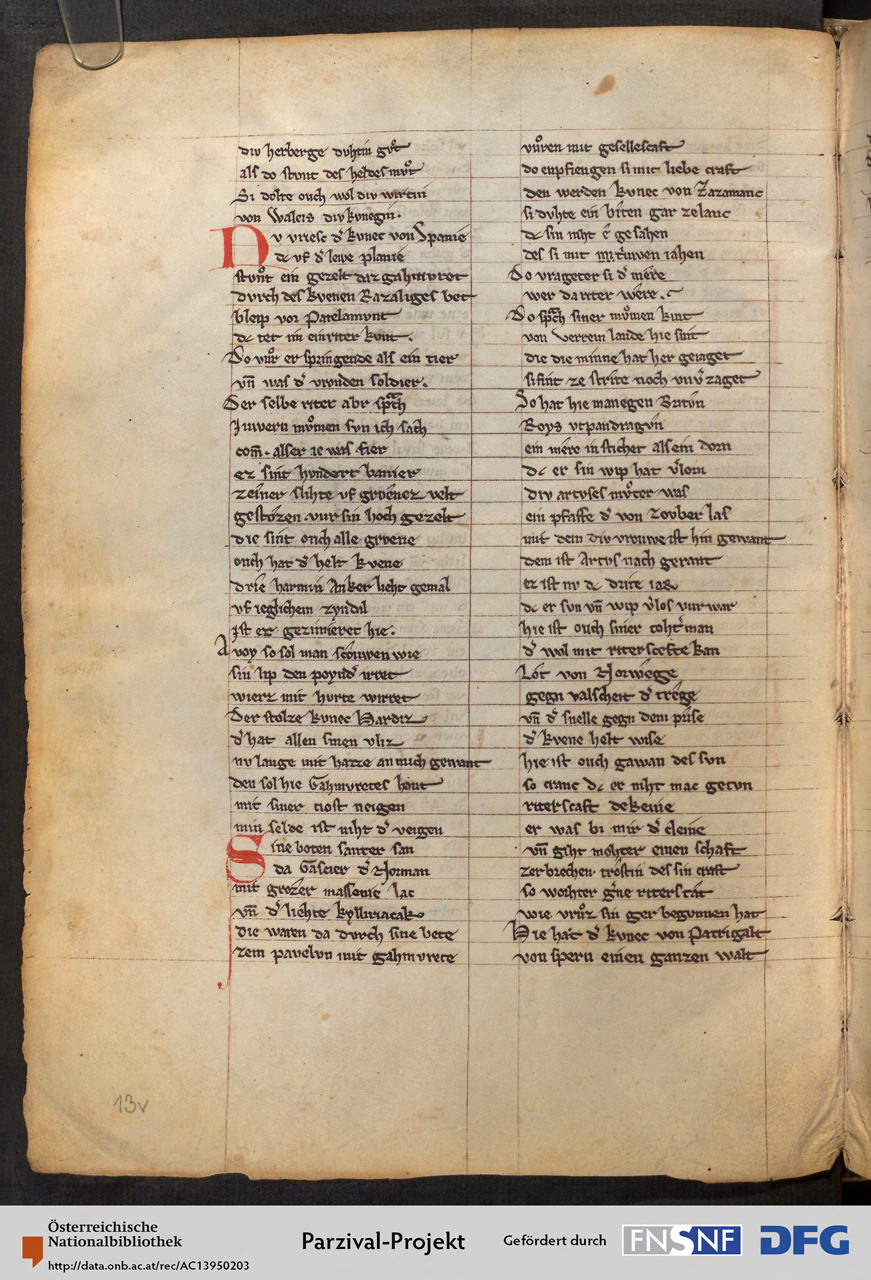 div herberge duhtin gvͦt
als do stvnt des heldes mvͦt
Si dolte ouch wol div wirtin
von Waleis div kvnegin.
Nv vriesc dˢ kvnec von Spanie
dc vf dˢ lewe planie
stvnͦt ein gezelt daz gahmvret
dvrch des kvenen Razaliges bet
bleip vor Patelamvnt
dc tet im ein riter kvnt.
Do vuͦr er springende als ein tier
vn̄ was dˢ vrouden soldier.
Der selbe riter abr sprach
Juwern mvͦmen svn ich sach
com̄. als er ie was fier
ez sint hvndert banier
zeiner slihte vf grvͦenez velt
gestozen vur sin hoch gezelt
die sint ouch alle grvene
ouch hat dˢ helt kvene
drie harmin Anker lieht gemal
vf ieglichem zyndal
Ist er gezimieret hie.
Avoy so sol man scouwen wie
sin lip den poyndˢ irret
wierz mit hurte wirret
Der stolze kvnec Hardiz
dˢ hat allen sinen vliz
nv lange mit hazze an mich gewant
den sol hie Gahmvretes hant
mit siner tiost neigen
min selde ist niht dˢ veigen
Sine boten santer san
da Gascier dˢ Norman
mit grozer massenie lac
vn̄ dˢ liehte kyllirjacac
die waren da dvrch sine bete
zem pavelvn mit gahmvrete
vuͦren mit gesellescaft
do enpfiengen si mit liebe craft
den werden kvnec von Zazamanc
si dvhte ein biten gar ze lanc
dc si in niht ê gesahen
des si mit triuwen iahen
Do vrageter si dˢ mere
wer da riter were.
Do sprach siner mvͦmen kint
von verrem lande hie sint
die die minne hat her geiaget
si sint ze strite noch vnvˢzaget
So hat hie manegen Britvn
Roys vtpandragvn
ein mere in sticher als ein dorn
dc er sin wip hat vˢlorn
div artvses mvͦter was
ein pfaffe dˢ von zovber las
mit dem div vrouwe ist hin gewant
dem ist Artvs nach gerant
ez ist nv dc drite iar
dc er svn vn̄ wip vˢlos vur war
hie ist ouch siner tohtˢ man
dˢ wol mit riterscefte kan
Lot von Norwege
gegn valscheit dˢ trege
vn̄ dˢ snelle gegn dem prise
dˢ kvene helt wise
hie ist ouch gawan des svn
so cranc dc er niht mac getvn
riterscaft dekeine
er was bi mir dˢ cleine
vn̄ giht mohter einen schaft
zerbrechen trostin des sin craft
so worhter gˢne riters tat
wie vruͦ sin ger begunnen hat
Hie hat dˢ kvnec von Patrigalt
von spern einen ganzen walt
13v
Österreichische
Nationalbibliothek
http://data.onb.ac.at/rec/AC13950203
Parzival-Projekt
Gefördert durch
FNSNF
DFG